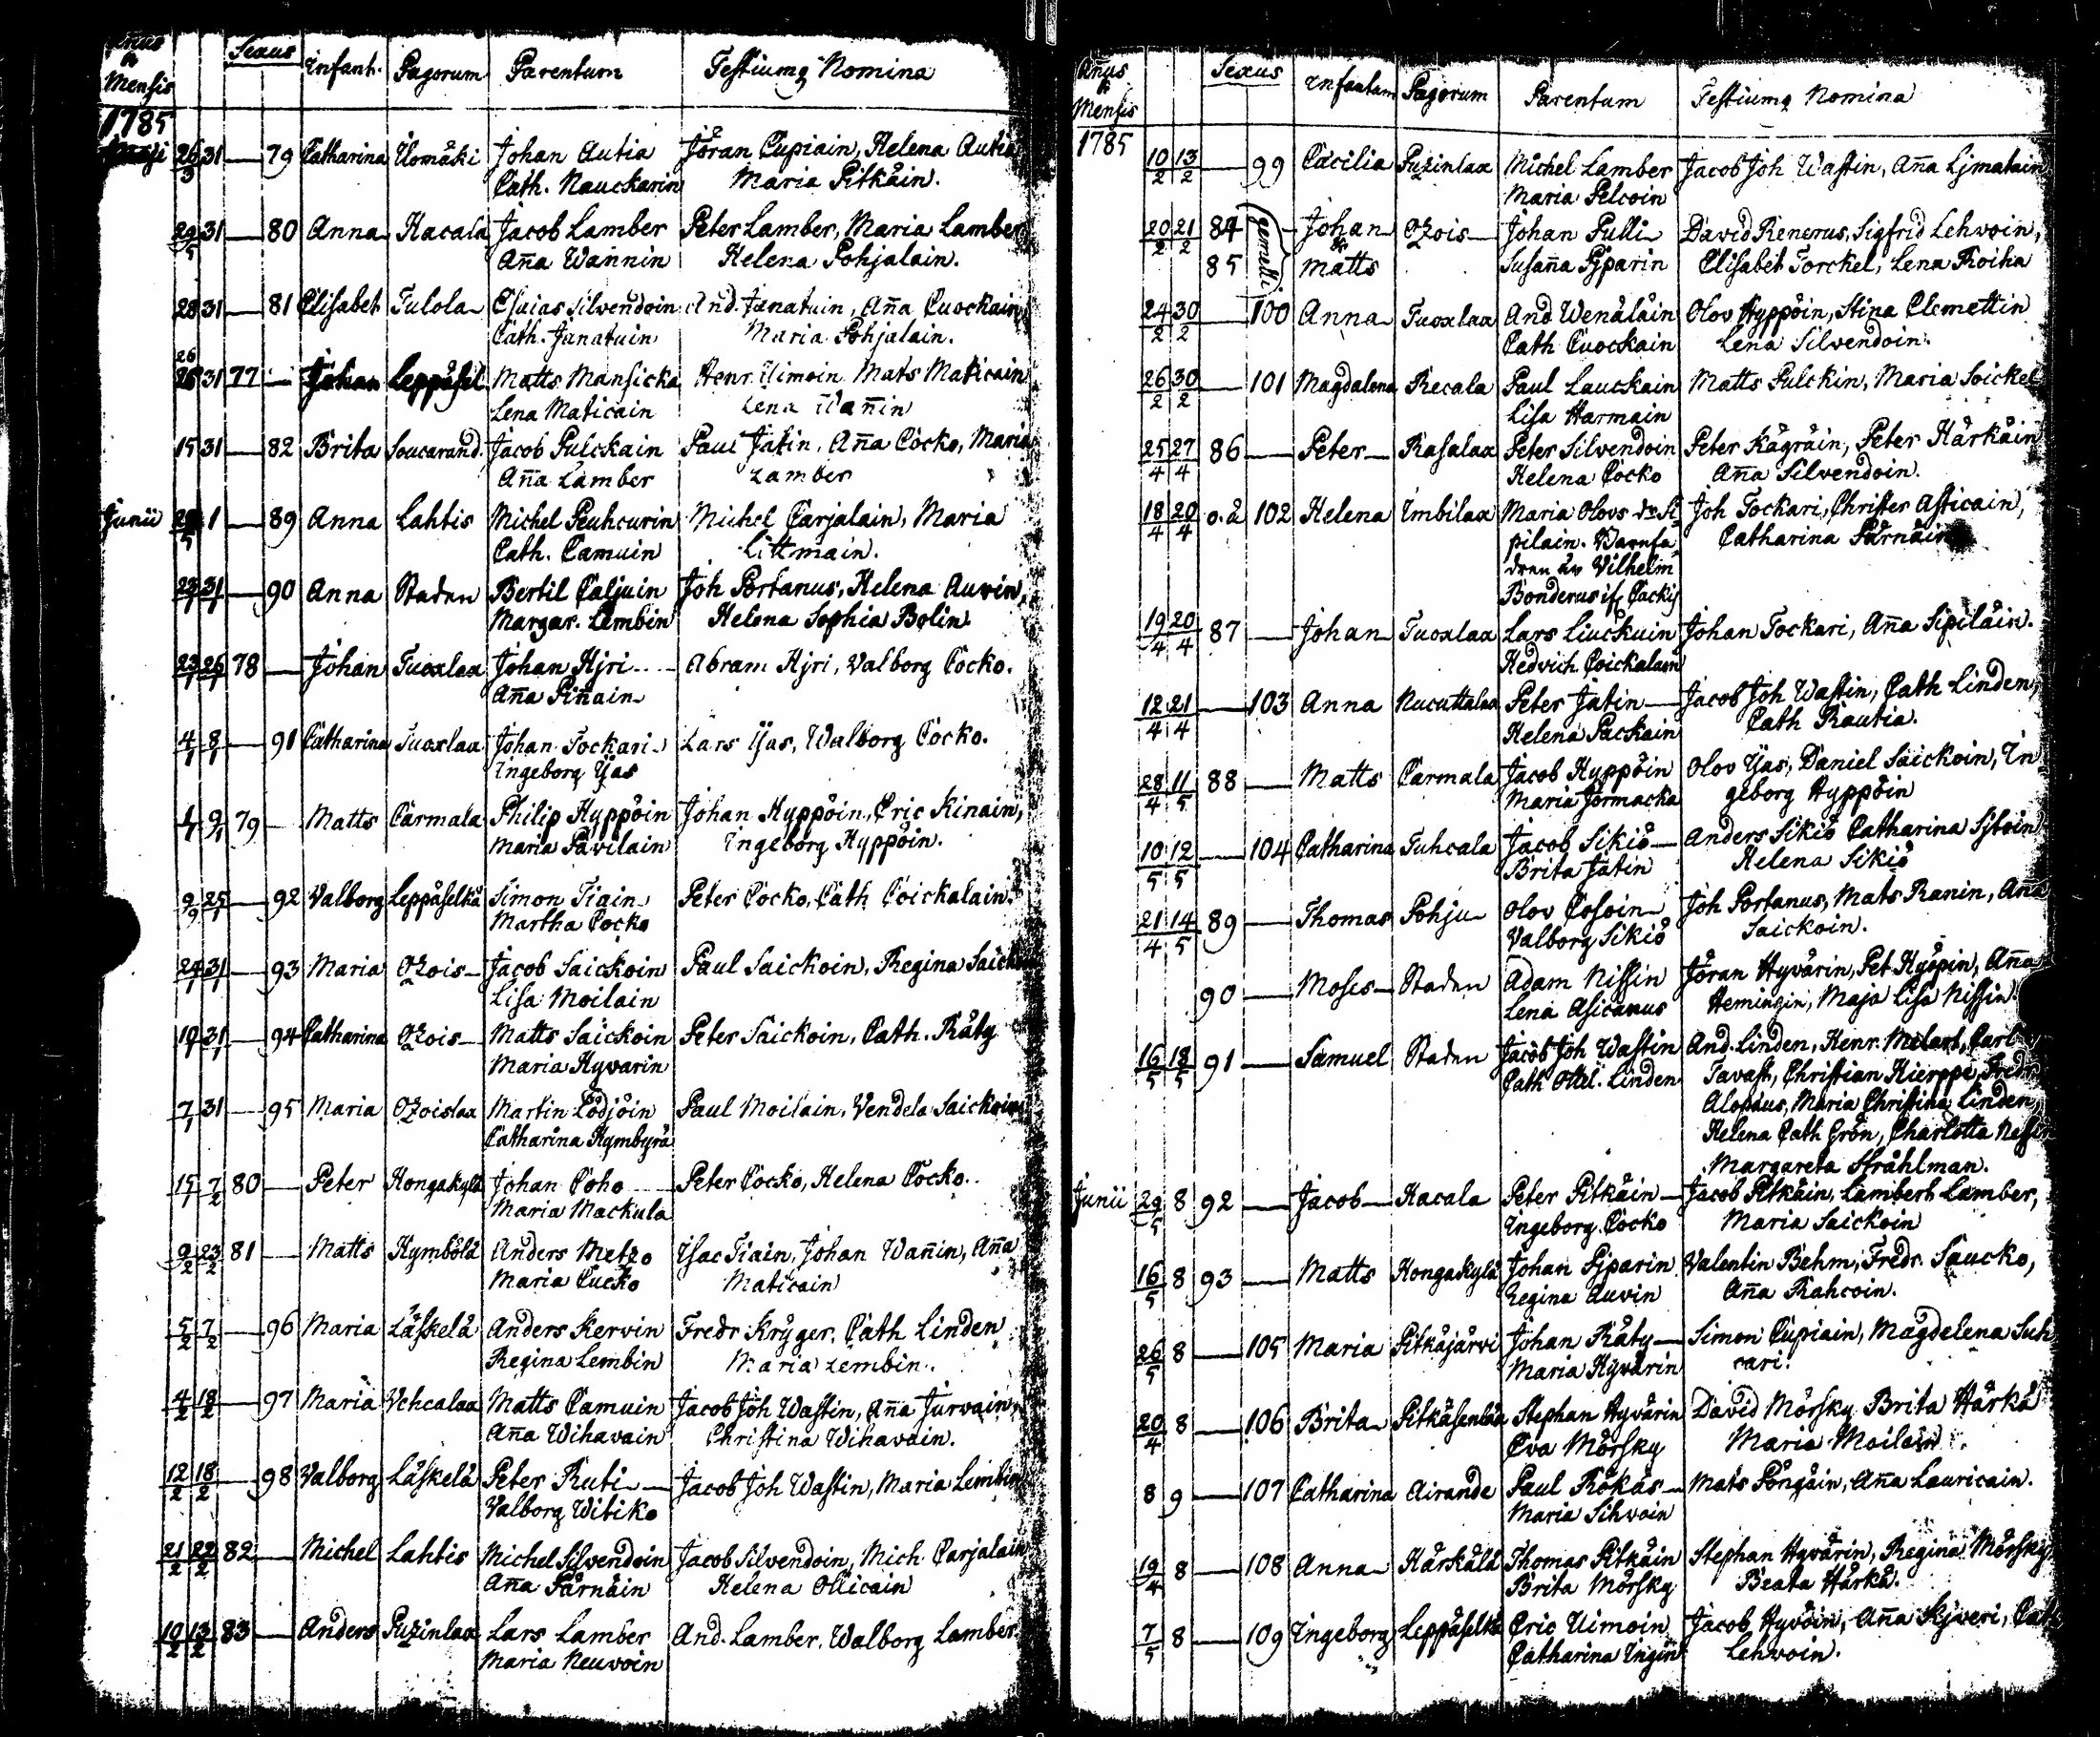 Anus & Mensis Sexus Infant. Pagorum Parentum Testiumq Nomina
1785
Maji 26/3 31 — 79 Catharina Uomäki Johan Autia Jöran Cupiain, Helena Autia
Cath. Nauckarin Maria Pitkäin.
29/5 31 — 80 Anna Hacala Jacob Lamber Peter Lamber, Maria Lamber
Aña Wannin Helena Pohjalain.
28 31 — 81 Elisabet Tulola Esaias Silvendoin And. Janatuin, Aña Cuockain
Cath. Janatuin Maria Pohjalain.
26 31 77 — Johan Leppäsel. Matts Mansicka Henr. Uimoin Mats Maticain
Lena Maticain Lena Wañin
15 31 — 82 Brita Soucarand. Jacob Pulckain Paul Jatin, Aña Cocko, Maria
Aña Lamber Lamber
Junii 1 — 89 Anna Lahtis Michel Peuhcurin Michel Carjalain, Maria
Cath. Camuin Littmain.
23/1 31/1 — 90 Anna Staden Bertil Caljuin Joh Portanus, Helena Auvin,
Margar. Lembin Helena Sophia Bolin
23/1 26/1 78 — Johan Tuoxlax Johan Hjri Abram Hjri, Valborg Cocko.
Aña Piñain
4/1 8/1 — 91 Catharina Tuoxlax Johan Tockari Lars Ijas, Walborg Cocko.
Ingeborg Ijas
1/1 9/1 79 — Matts Carmala Philip Hyppöin Johan Hyppöin, Eric Kinain,
Maria Pavilain Ingeborg Hyppöin.
9/9 25/1 — 92 Valborg Leppäselkä Simon Tiain Peter Cocko, Cath Coickalain.
Martha Cocko
24/1 31/1 — 93 Maria Ozois Jacob Saickoin Paul Saickoin, Regina Saickoin
Lisa Moilain
19/1 31/1 — 94 Catharina Ozois Matts Saickoin Peter Saickoin, Cath. Räty
Maria Hyvarin
7/1 31 — 95 Maria Ozoislax Martin Lödjöin Paul Moilain, Vendela Saickoin
Catharina Kymbyrä
15/1 7/2 80 — Peter Hongakylä Johan Coho Peter Cocko, Helena Cocko.
Maria Mackula
9/2 23/2 81 — Matts Kymbölä Anders Metzo Isac Tiain, Johan Wañin, Aña
Maria Cucko Maticain
5/2 7/2 — 96 Maria Läskelä Anders Kervin Fredr Kryger, Cath Linden
Regina Lembin Maria Lembin.
4/2 18/2 — 97 Maria Vehcalax Matts Camuin Jacob Joh Wastin, Aña Jurvain,
Aña Wihavain Christina Wihavain.
12/2 18/2 — 98 Valborg Läskelä Peter Ruti Jacob Joh Wastin, Maria Lembin
Valborg Witiko
21/2 22/2 82 — Michel Lahtis Michel Silvendoin Jacob Silvendoin, Mich Carjalain
Aña Pärnäin Helena Ollicain
10/2 13/2 83 — Anders Puzinlax Lars Lamber And. Lamber, Walborg Lamber.
Maria Neuvoin
Añus & Mensis Sexus Infantum Pagorum Parentum Testiumq Nomina
1785
10/2 13/2 — 99 Cäcilia Puzinlax Michel Lamber Jacob Joh Wastin, Aña Ljmatain
Maria Pelcoin
20/2 21/2 84 (gemelli) Johan & Ozois Johan Pulli David Renerus, Sigfrid Lehvoin,
85 Matts Susaña Pjparin Elisabet Torckel, Lena Roiha
24/2 30/2 — 100 Anna Tuoxlax And Wenäläin Olov Hyppöin, Stina Clemettin
Cath Cuockain Lena Silvendoin.
26/2 30/2 — 101 Magdalena Recala Paul Lauckain Matts Pulckin, Maria Soickel
Lisa Harmain
25/4 27/4 86 — Peter Rasalax Peter Silvendoin Peter Kägräin, Peter Härkäin
Helena Cocko Aña Silvendoin.
18/4 20/4 o.ä 102 Helena Imbilax Maria Olovs dr Si- Joh Tockari, Christer Asticain,
pilain. Barnfa- Catharina Pärnäin
dren är Vilhelm
Bonderus if. Cackis
19/4 20/4 87 — Johan Tuoxlax Lars Liuckuin Johan Tockari, Aña Sipiläin.
Hedvich Coickalain
12/4 21/4 — 103 Anna Nucuttalax Peter Jatin Jacob Joh Wastin, Cath Linden,
Helena Packain Cath Rautia.
28/4 11/5 88 — Matts Carmala Jacob Hyppöin Olov Ijas, Daniel Saickoin, In
Maria Jormacka geborg Hyppöin
10/5 12/5 — 104 Catharina Tuhcala Jacob Sikiö Anders Sikiö Catharina Sjtoin
Brita Jatin Helena Sikiö
21/4 14/5 89 — Thomas Pohju Olov Cosoin Joh Portanus, Mats Ranin, Aña
Valborg Sikiö Saickoin.
90 — Moses Staden Adam Nissin Jöran Hyvärin, Pet Hyöpin, Aña
Lena Asicanus Hemingin, Maja Lisa Nissin.
16/5 18/5 91 — Samuel Staden Jacob Joh Wastin And. Linden, Henr. Melart, Carl
Cath Ottel. Linden Tavast, Christian Hierppe, Fredr
Alopäus, Maria Christina Linden,
Helena Cath Grön, Charlotta
Margareta Stråhlman.
Junii 29/5 8 92 — Jacob Hacala Peter Pitkäin Jacob Pitkäin, Lambert Lamber,
Ingeborg Cocko Maria Saickoin
16/5 8 93 — Matts Hongakylä Johan Pjparin Valentin Behm, Fredr. Saucko,
Regina Auvin Aña Rahcoin.
26/5 8 — 105 Maria Pitkäjärvi Johan Räty Simon Cupiain, Magdelena Suh
Maria Hyvärin cari.
20/4 8 — 106 Brita Pitkäsenlax Stephan Hyvärin David Mörsky Brita Härkä
Eva Mörsky Maria Moilain
8 9 — 107 Catharina Airande Paul Rökäs Mats Pöngäin, Aña Lauricain.
Maria Sihvoin
19/4 8 — 108 Anna Härkälä Thomas Pitkäin Stephan Hyvärin, Regina Mörsky
Brita Mörsky Beata Härkä.
7/5 8 — 109 Ingeborg Leppäselkä Eric Uimoin Jacob Hyvöin, Aña Skjveri, Cath
Catharina Ingin Lehvoin.